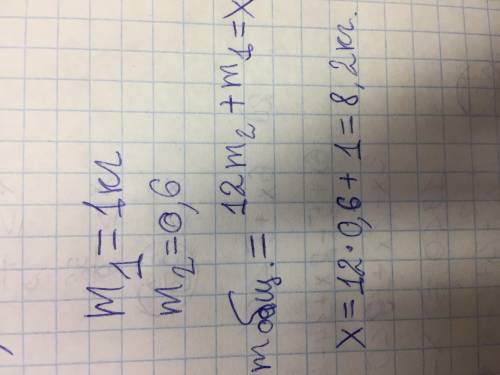 m₁ = 1 кг
m₂ = 0,6
m общ. = 12m₂ + m₁ = x
x = 12 · 0,6 + 1 = 8,2 кг.